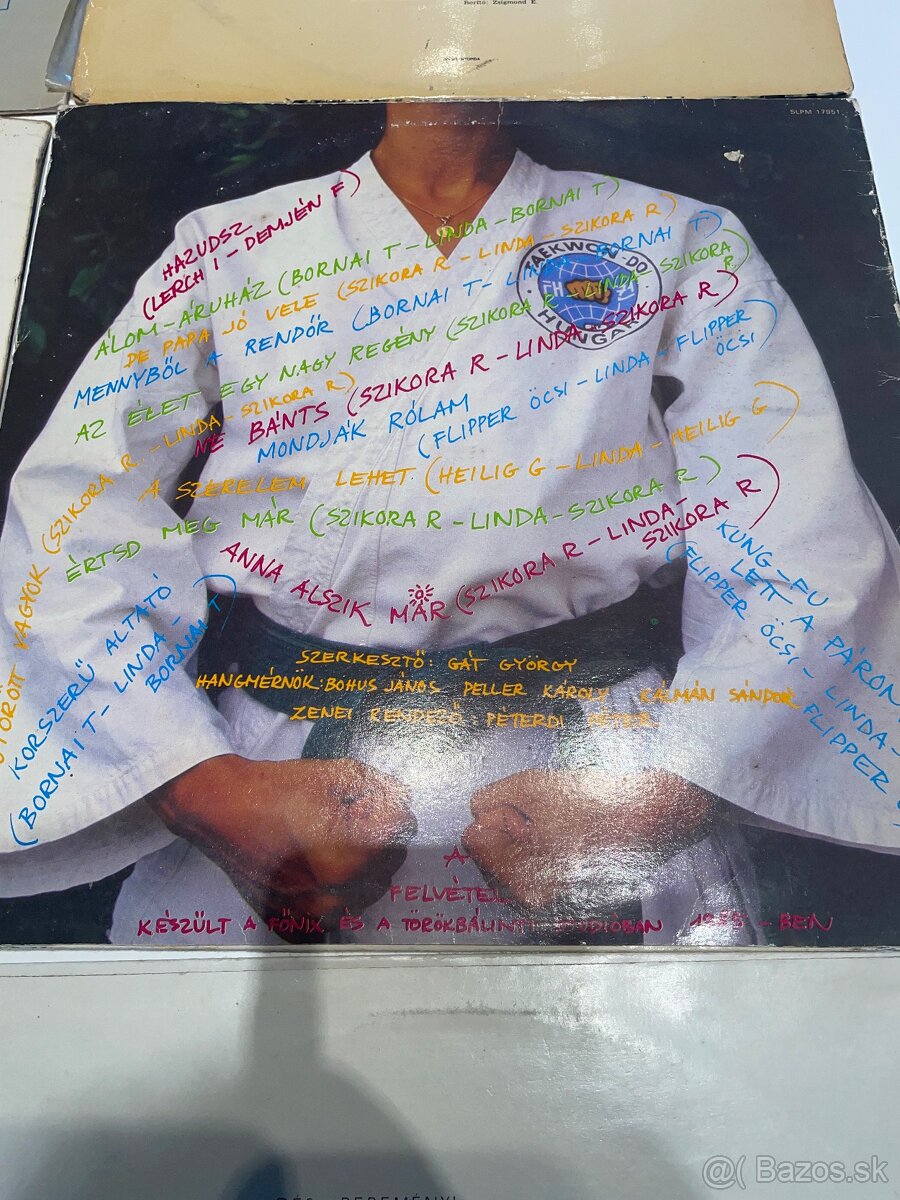 Borító: Zsigmond E.
SLPM 17951
HAZUDSZ
(LERCH I - DEMJÉN F)
ÁLOM-ÁRUHÁZ (BORNAI T-LINDA-BORNAI T)
DE PAPA JÓ VELE (SZIKORA R-LINDA-SZIKORA R)
MENNYBŐL A RENDŐR (BORNAI T-LINDA-BORNAI T)
AZ ÉLET EGY NAGY REGÉNY (SZIKORA R-LINDA-SZIKORA R)
NE BÁNTS (SZIKORA R-LINDA-SZIKORA R)
MONDJÁK RÓLAM
(FLIPPER ÖCSI-LINDA-FLIPPER ÖCSI)
A SZERELEM LEHET (HEILIG G-LINDA-HEILIG G)
ÉRTSD MEG MÁR (SZIKORA R-LINDA-SZIKORA R)
ANNA ALSZIK MÁR (SZIKORA R-LINDA-SZIKORA R)
TÖRÖTT VAGYOK (SZIKORA R.-LINDA-SZIKORA R)
KORSZERŰ ALTATÓ
(BORNAI T-LINDA-BORNAI T)
KUNG-FU
LETT A PÁROM
(FLIPPER ÖCSI-LINDA-FLIPPER
TAEKWON-DO
HUNGARY
SZERKESZTŐ: GÁT GYÖRGY
HANGMÉRNÖK: BOHUS JÁNOS PELLER KÁROLY KÁLMÁN SÁNDOR
ZENEI RENDEZŐ: PÉTERDI PÉTER
A
FELVÉTEL
KÉSZÜLT A FŐNIX ÉS A TÖRÖKBÁLINTI STÚDIÓBAN - BEN
BEREMÉNYI
@( Bazos.sk